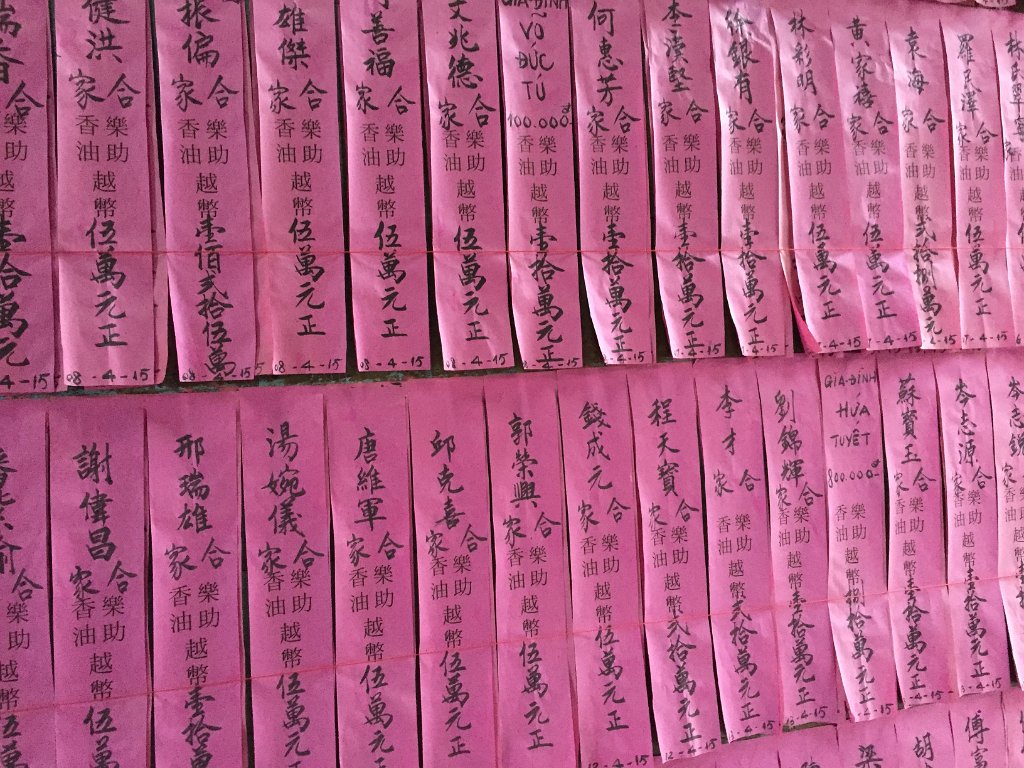 健洪
合家
樂助
香油
越幣
伍萬元正
08-4-15
振偏
合家
樂助
香油
越幣
壹佰弍拾伍萬
雄傑
合家
樂助
香油
越幣
伍萬元正
08-4-15
善福
合家
樂助
香油
越幣
伍萬元正
兆德
合家
樂助
香油
越幣
伍萬元正
08-4-15
GIA-ĐÌNH
VÕ
ĐỨC
TÚ
100.000đ
樂助
香油
越幣
壹拾萬元正
何惠芳
合家
樂助
香油
越幣
壹拾萬元正
合家
樂助
香油
越幣
壹拾萬元正
徐銀有
合家
樂助
香油
越幣
壹拾萬元正
林彩明
合家
樂助
香油
越幣
伍萬元正
黄家禧
合家
樂助
香油
越幣
伍萬元正
袁海
合家
樂助
香油
越幣
弍拾捌萬元正
羅民澤
合家
樂助
香油
越幣
伍萬元正
謝偉昌
合家
樂助
香油
越幣
伍萬
邢瑞雄
合家
樂助
香油
越幣
壹拾萬
湯婉儀
合家
樂助
香油
越幣
伍萬元
唐維軍
合家
樂助
香油
越幣
伍萬元正
邱克喜
合家
樂助
香油
越幣
伍萬元正
郭榮興
合家
樂助
香油
越幣
伍萬元正
錢成元
合家
樂助
香油
越幣
伍萬元正
12-4-15
程天寶
合家
樂助
香油
越幣
弍拾萬元正
12-4-15
李才
合家
樂助
香油
越幣
弍拾萬元正
劉錦輝
合家
樂助
香油
越幣
壹拾萬元正
13-4-15
GIA-ĐÌNH
HỨA
TUYẾT
800.000đ
樂助
香油
越幣
捌拾萬元正
蘇寶玉
合家
樂助
香油
越幣
壹拾萬元正
岑志源
合家
樂助
香油
越幣
壹拾萬元正
岑志錦
梁
胡
傅富